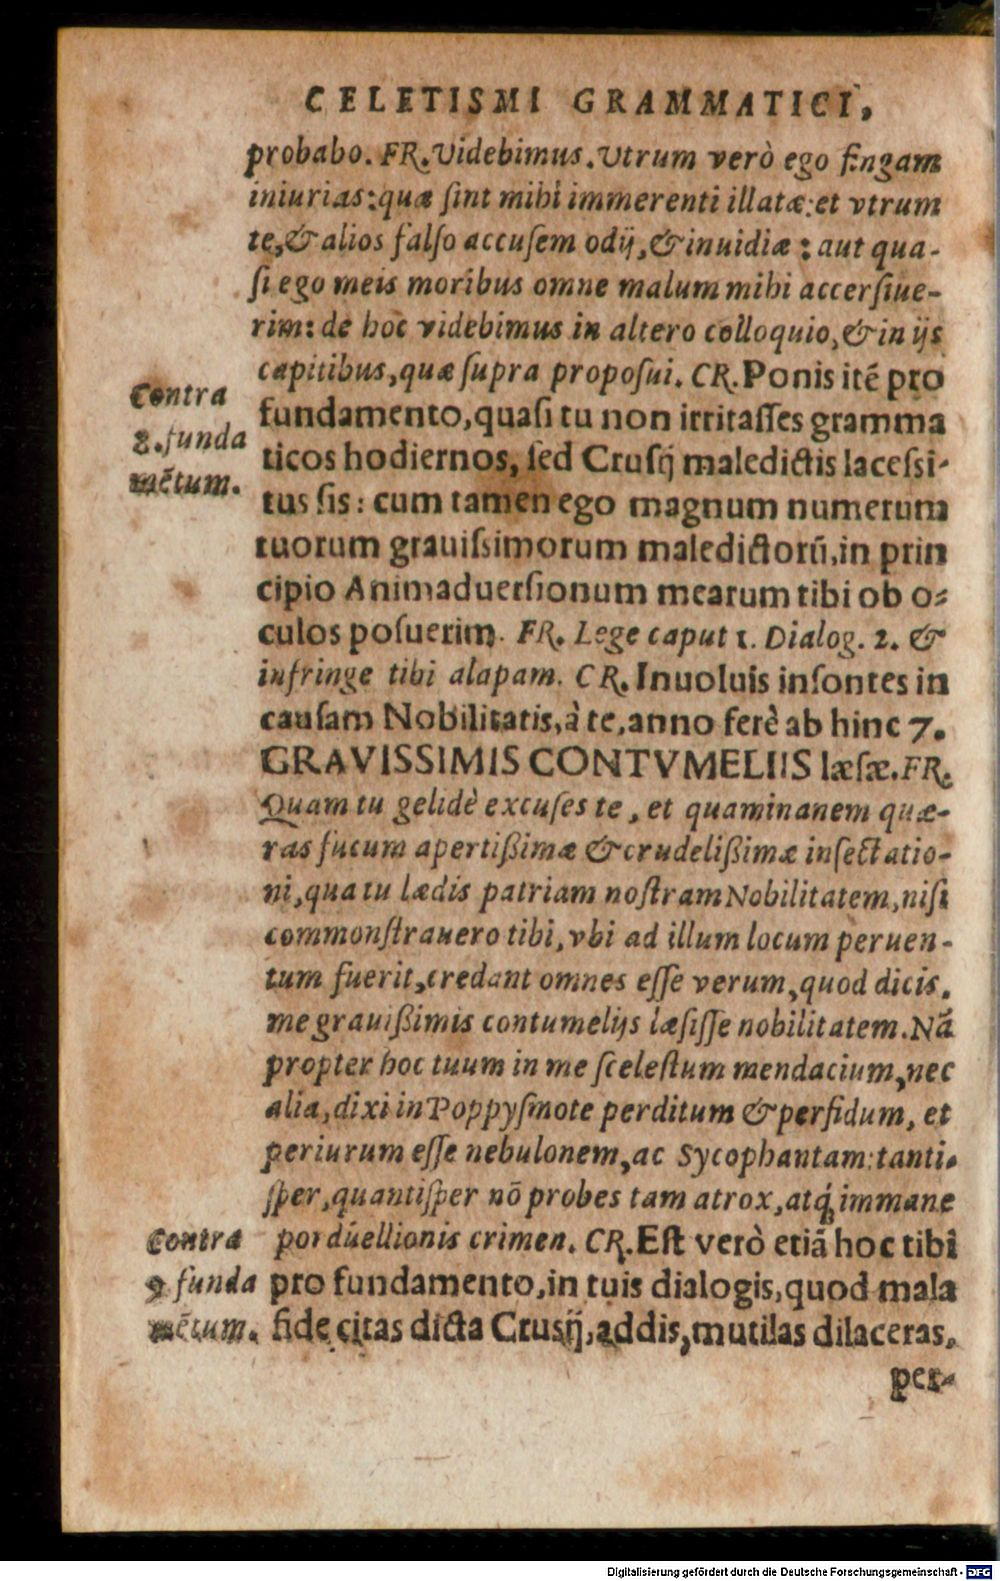 CELETISMI GRAMMATICI,
probabo. FR. Videbimus. Vtrum verò ego fingam
iniurias: quæ ſint mihi immerenti illatæ: et vtrum
te, & alios falſo accuſem odij, & inuidiæ: aut qua-
ſi ego meis moribus omne malum mihi accerſiue-
rim: de hoc videbimus in altero colloquio, & in ijs
capitibus, quæ ſupra propoſui. CR. Ponis itē pro
fundamento, quaſi tu non irritaſſes gramma
ticos hodiernos, ſed Cruſij maledictis laceſsi-
tus ſis: cum tamen ego magnum numerum
tuorum grauiſsimorum maledictorū, in prin
cipio Animaduerſionum mearum tibi ob o-
culos poſuerim. FR. Lege caput 1. Dialog. 2. &
infringe tibi alapam. CR. Inuoluis inſontes in
cauſam Nobilitatis, à te, anno ferè ab hinc 7.
GRAVISSIMIS CONTVMELIIS læſæ. FR.
Quam tu gelidè excuſes te, et quam inanem quæ-
ras fucum apertißimæ & crudelißimæ inſectatio-
ni, qua tu lædis patriam noſtram Nobilitatem, niſi
commonſtrauero tibi, vbi ad illum locum peruen-
tum fuerit, credant omnes eſſe verum, quod dicis.
me grauißimis contumelijs læſiſſe nobilitatem. Nā
propter hoc tuum in me ſceleſtum mendacium, nec
alia, dixi in Poppyſmote perditum & perfidum, et
periurum eſſe nebulonem, ac Sycophantam: tanti-
ſper, quantiſper nō probes tam atrox, atq́ immane
porduellionis crimen. CR. Eſt verò etiā hoc tibi
pro fundamento, in tuis dialogis, quod mala
fide citas dicta Crusij, addis, mutilas dilaceras,
per-
Contra
8. funda
mētum.
Contra
9 funda
mētum.
Digitalisierung gefördert durch die Deutsche Forschungsgemeinschaft - DFG